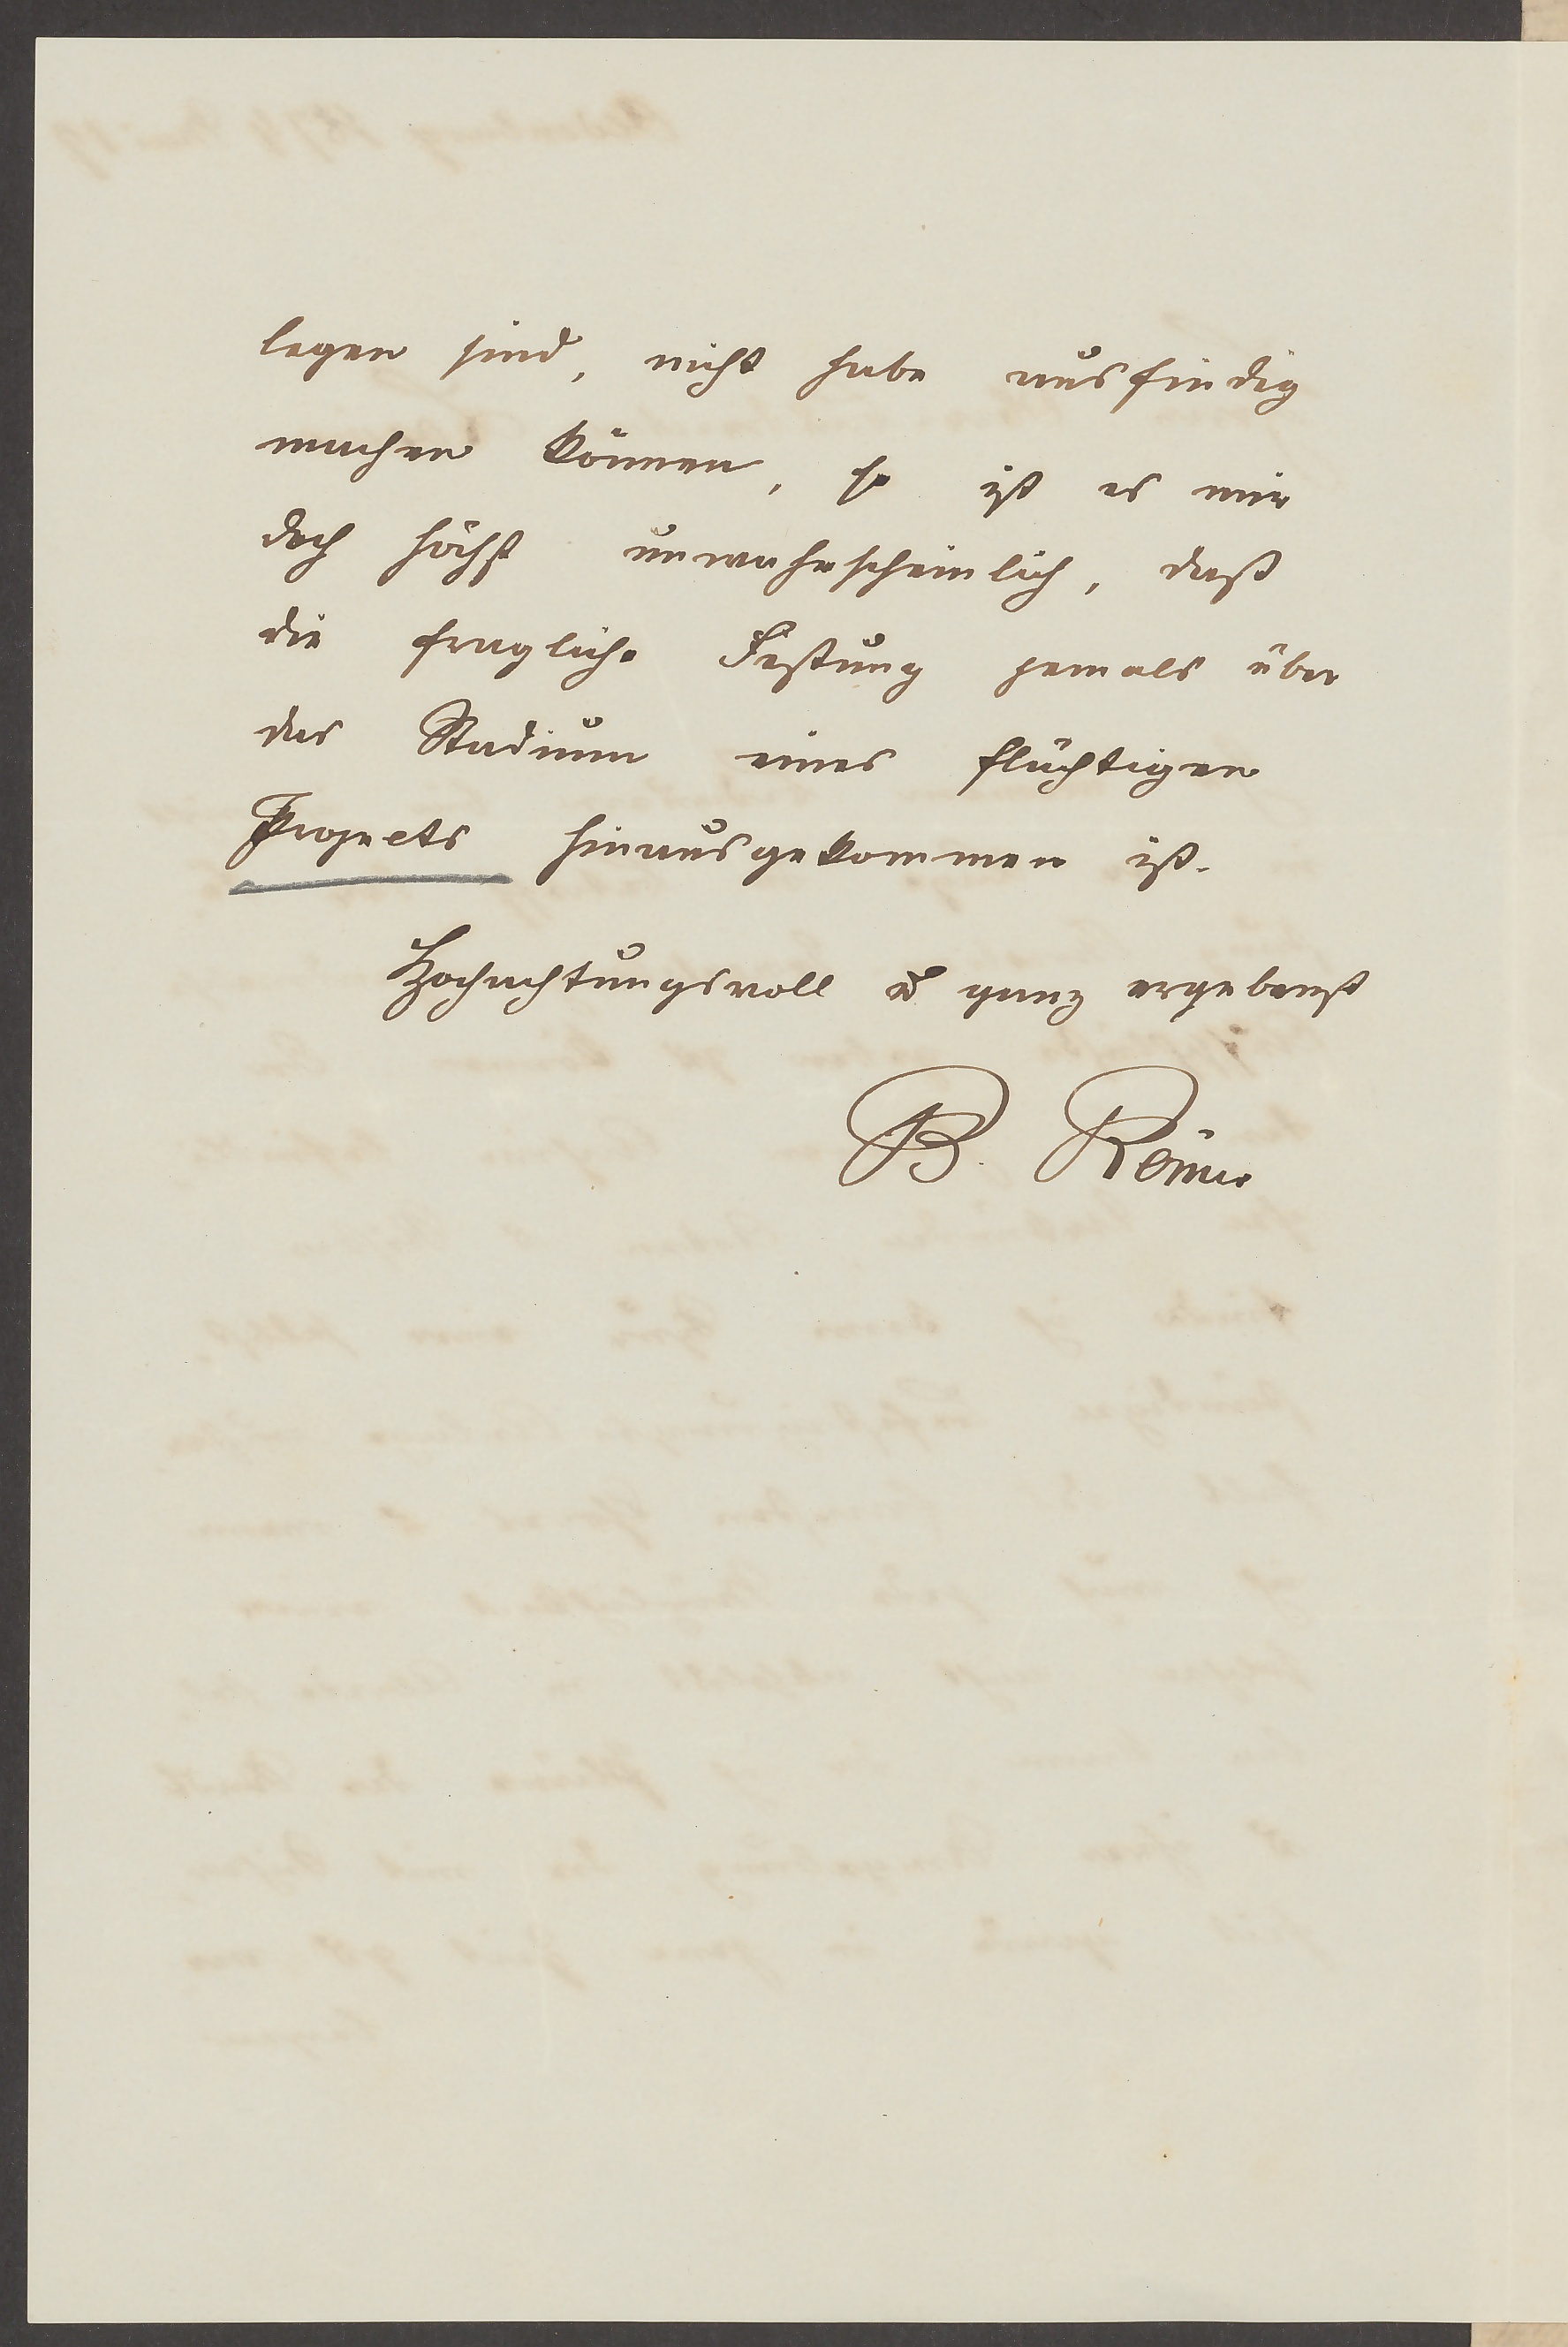 legen sind, nicht habe ausfindig
machen können, so ist es mir
doch höchst unwahrscheinlich, daß
die fragliche Festung jemals über
das Stadium eines flüchtigen
Projects hinausgekommen ist.
Hochachtungsvoll u ganz ergebenst
B. Römer